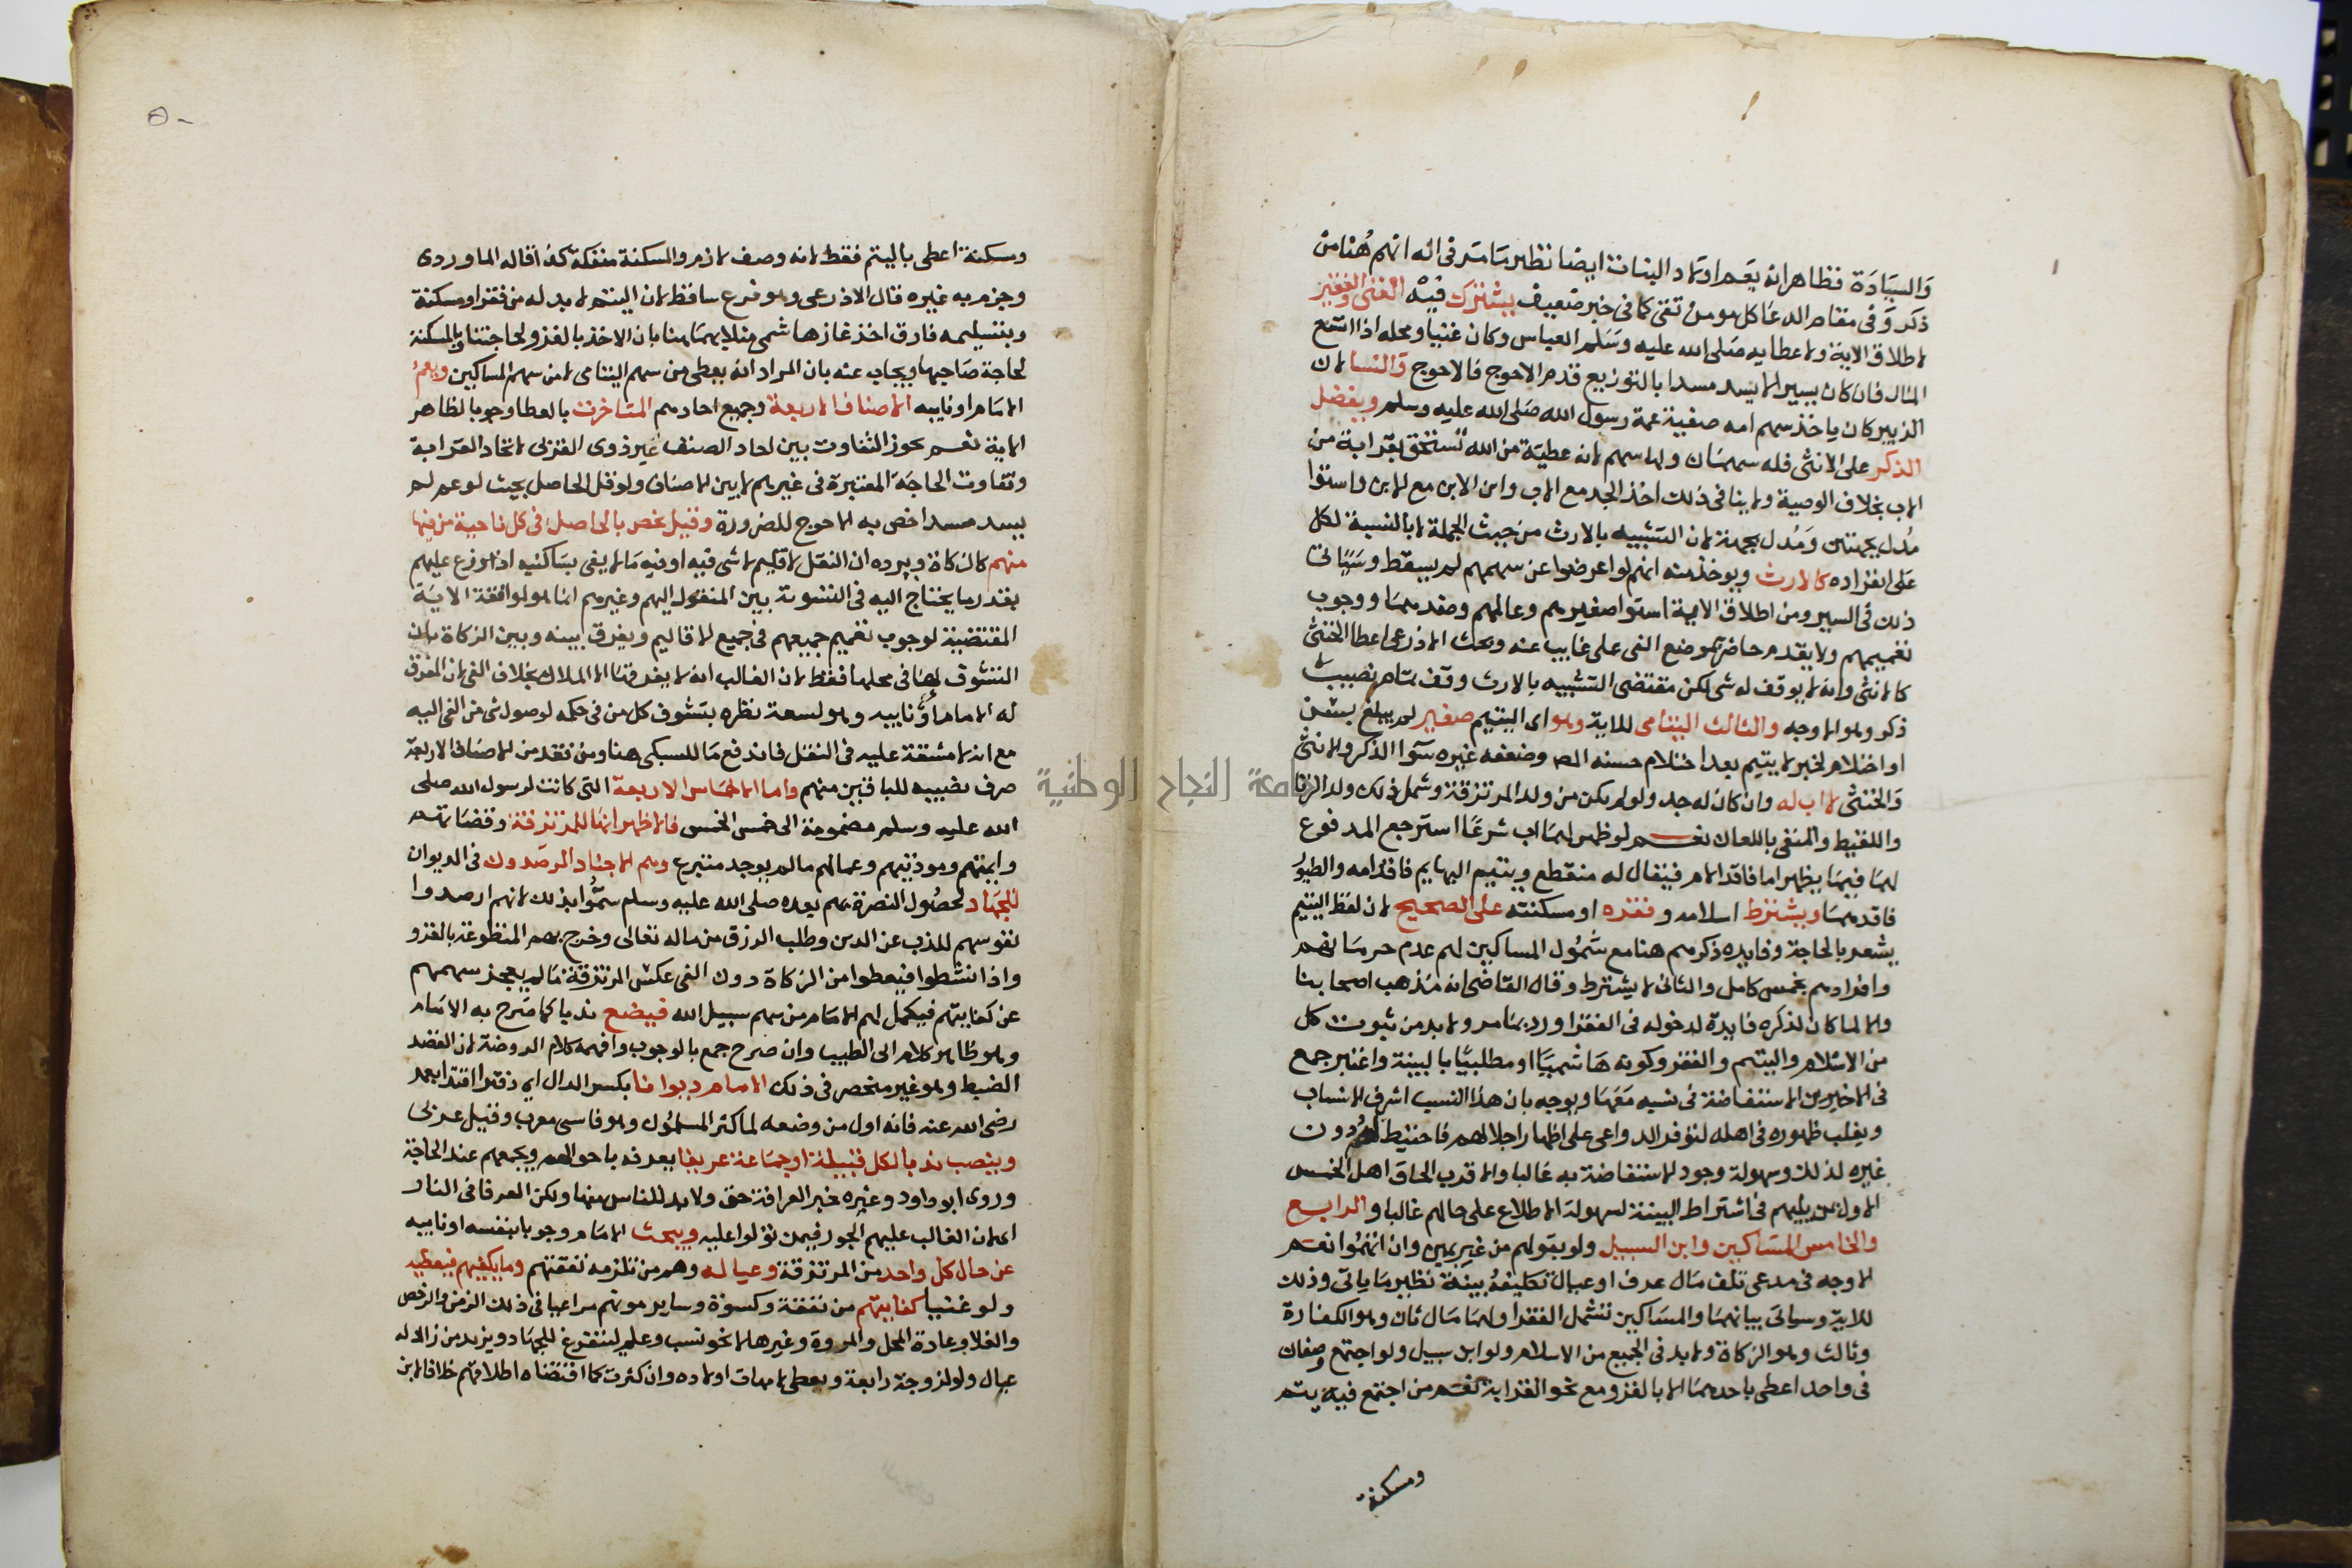 والسيادة فظاهر انه يعم اولاد البنات ايضا نظير ما مر في اله انهم هنا من
ذكر وفي مقام الدعا كل مومن تقي كما في خبر ضعيف يشترك فيه الغني والفقير
لاطلاق الاية ولاعطايه صلى الله عليه وسلم العباس وكان غنيا ومحله اذا اتسع
المال فان كان يسيرا لا يسد مسدا بالتوزيع قدم الاحوج فالاحوج والنسا لان
الزبير كان ياخذ سهم امه صفية عمة رسول الله صلى الله عليه وسلم ويفضل
الذكر على الانثى فله سهمان ولها سهم لانه عطية من الله تستحق بقرابة من
الاب بخلاف الوصية ولا ينافي ذلك اخذ الجد مع الاب وابن الابن مع الابن واستوا
مُدل بجهتين ومُدل بجهة لان التشبيه بالارث من حيث الجملة لا بالنسبة لكل
على انفراده كالارث ويوخذ منه انهم لو اعرضوا عن سهمهم لم يسقط وسياتي
ذلك في السير ومن اطلاق الاية استوا صغيرهم وعالمهم وضدهما ووجوب
تعميمهم ولا يقدم حاضر بموضع الفي على غايب عنه وبحث الاذرعي اعطا الخنثى
كالانثى وانه لا يوقف له شي لكن مقتضى التشبيه بالارث وقف تمام نصيب
ذكر وهو الاوجه والثالث اليتامى للاية وهو اي اليتيم صغير لم يبلغ بسن
او احتلام لخبر لا يتم بعد احتلام حسنه المص وضعفه غيره سوا الذكر والانثى
والخنثى لا اب له وان كان له جد ولو لم يكن من ولد المرتزقة وشمل ذلك ولد الزنا
واللقيط والمنفي باللعان نعم لو ظهر لهما اب شرعا استرجع المدفوع
لهما فيما يظهر اما فاقد الام فيقال له منقطع ويتيم البهايم فاقد امه والطيور
فاقدهما ويشترط اسلامه وفقره او مسكنته على الصحيح لان لفظ اليتيم
يشعر بالحاجة وفايده ذكرهم هنا مع شمول المساكين لهم عدم حرمانهم
وافرادهم بخمس كامل والثاني لا يشترط وقال القاضي انه مذهب اصحابنا
والا لما كان لذكره فايدة لدخوله في الفقرا ورد بما مر ولا بد من ثبوت كل
من الاسلام واليتم والفقر وكونه هاشميا او مطلبيا بالبينة واعتبر جمع
في الاخيرين الاستفاضة في نسبه معها ويوجه بان هذا النسب اشرف الانساب
ويغلب ظهوره في اهله لتوفر الدواعي على اظهار اجلالهم فاحتيط لهم دون
غيره لذلك وسهولة وجود الاستفاضة به غالبا والاقرب الحاق اهل الخمس
الاول بمن يليهم في اشتراط البينة لسهولة الاطلاع على حالهم غالبا والرابع
والخامس المساكين وابن السبيل ولو بقولهم من غير يمين وان اتهموا نعم
الاوجه في مدعي تلف مال عرف او عيال تكليفه بينة نظير ما ياتي وذلك
للاية وسياتي بيانهما والمساكين تشمل الفقرا ولهما مال ثان وهو الكفارة
وثالث وهو الزكاة ولا بد في الجميع من الاسلام ولو ابن سبيل ولو اجتمع وصفان
في واحد اعطي باحدهما الا بالغزو مع نحو القرابة نعم من اجتمع فيه يتم
ومسكنة
٥٠
ومسكنة اعطي باليتم فقط لانه وصف لازم والمسكنة منفكة كذا قاله الماوردي
وجزم به غيره قال الاذرعي وهو فرع ساقط لان اليتيم لا بد له من فقر او مسكنة
وبتسليمه فارق اخذ غاز هاشمي مثلا بهما هنا بان الاخذ بالغزو لحاجتنا وبالمسكنة
لحاجة صاحبها ويجاب عنه بان المراد انه يعطى من سهم اليتامى لا من سهم المساكين ويعم
الامام او نايبه الاصناف الاربعة وجميع احادهم المتاخرة بالعطا وجوبا لظاهر
الاية نعم يجوز التفاوت بين احاد الصنف غير ذوي القربى لاتحاد القرابة
وتفاوت الحاجة المعتبرة في غيرهم لا بين الاصناف ولو قل الحاصل بحيث لو عم لم
يسد مسدا خص به الاحوج للضرورة وقيل يخص بالحاصل في كل ناحية من فيها
منهم كالزكاة ويرده ان النقل لاقليم لا شي فيه او فيه ما لا يفي بساكنيه اذا وزع عليهم
بقدر ما يحتاج اليه في التسوية بين المنقول اليهم وغيرهم انما هو لموافقة الاية
المقتضية لوجوب تعميم جميعهم في جميع الاقاليم ويفرق بينه وبين الزكاة بان
التشوف لها في محلها فقط لان الغالب انه لا يفرقها الا الملاك بخلاف الفي لان المفرق
له الامام او نايبه وهو لسعة نظره يتشوف كل من في حكمه لوصول شي من الفي اليه
مع انه لا مشقة عليه في النقل فاندفع ما للسبكي هنا ومن فقد من الاصناف الاربعة
صرف نصيبه للباقين منهم واما الاخماس الاربعة التي كانت لرسول الله صلى
الله عليه وسلم مضمومة الى خمس الخمس فالاظهر انها للمرتزقة وقضاتهم
وايمتهم وموذنيهم وعمالهم ما لم يوجد متبرع وهم الاجناد المرصدون في الديوان
للجهاد لحصول النصرة بهم بعده صلى الله عليه وسلم سموا بذلك لانهم ارصدوا
نفوسهم للذب عن الدين وطلب الرزق من ماله تعالى وخرج بهم المتطوعة بالغزو
واذا نشطوا فيعطوا من الزكاة دون الفي عكس المرتزقة ما لم يعجز سهمهم
عن كفايتهم فيكمل لهم الامام من سهم سبيل الله فيضع ندبا كما صرح به الامام
وهو ظاهر كلام ابي الطيب وان صرح جمع بالوجوب وافهمه كلام الروضة لان القصد
الضبط وهو غير منحصر في ذلك الامام ديوانا بكسر الدال اي دفترا اقتدا بعمر
رضي الله عنه فانه اول من وضعه لما كثر المسلمون وهو فارسي معرب وقيل عربي
وينصب ندبا لكل قبيلة او جماعة عريفا يعرف باحوالهم ويجمعهم عند الحاجة
وروى ابو داود وغيره خبر العرافة حق ولا بد للناس منها ولكن العرفا في النار
اي لان الغالب عليهم الجور فيمن تولوا عليه ويبحث الامام وجوبا بنفسه او نايبه
عن حال كل واحد من المرتزقة وعياله وهم من تلزمه نفقتهم وما يكفيهم فيعطيه
ولو غنيا كفايتهم من نفقة وكسوة وساير مونهم مراعيا في ذلك الزمن والرخص
والغلا وعادة المحل والمروة وغيرها لا نحو نسب وعلم ليتفرغ للجهاد ويزيد من زاد له
عيال ولو زوجة رابعة ويعطى لامهات اولاده وان كثرت كما اقتضاه اطلاقهم خلافا لابن
جامعة النجاح الوطنية